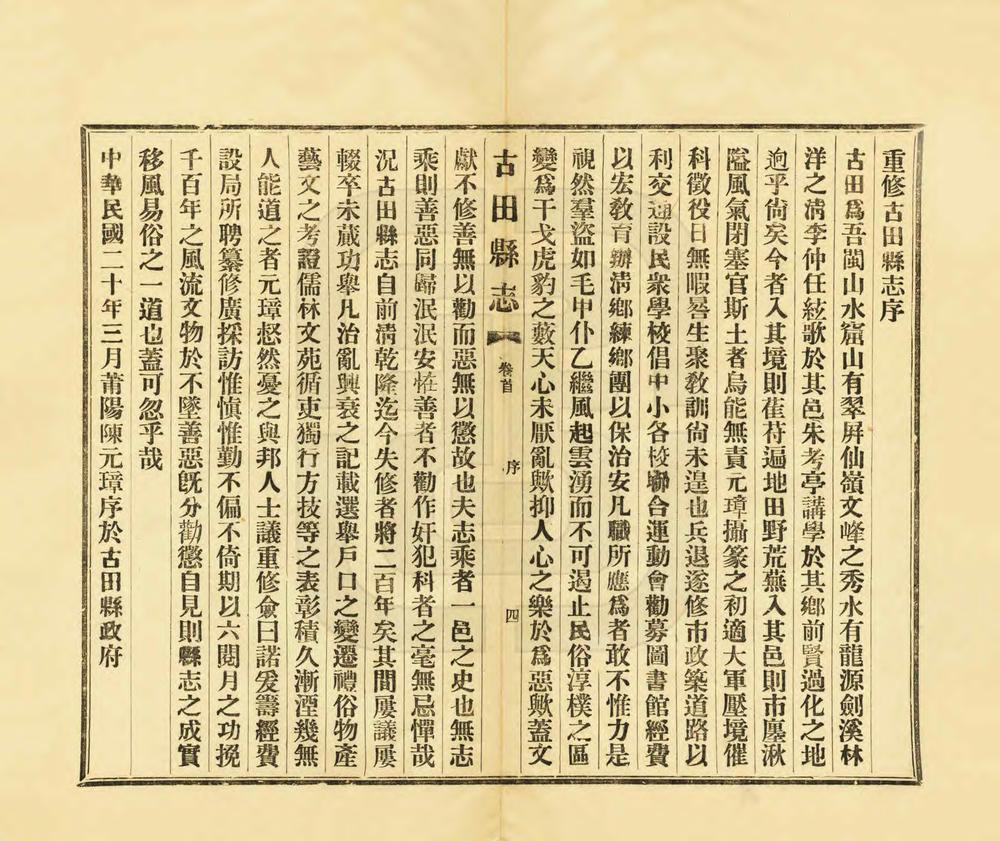 重修古田縣志序
古田爲吾閩山水窟山有翠屏仙嶺文峰之秀水有龍源劍溪林
洋之淸李仲任絃歌於其邑朱考亭講學於其鄕前賢過化之地
逈乎尙矣今者入其境則萑苻遍地田野荒蕪入其邑則市廛湫
隘風氣閉塞官斯土者烏能無責元璋攝篆之初適大軍壓境催
科徵役日無暇晷生聚敎訓尙未遑也兵退遂修市政築道路以
利交通設民衆學校倡中小各校聯合運動會勸募圖書館經費
以宏敎育辦淸鄕練鄕團以保治安凡職所應爲者敢不惟力是
視然羣盜如毛甲仆乙繼風起雲湧而不可遏止民俗淳樸之區
變爲干戈虎豹之藪天心未厭亂歟抑人心之樂於爲惡歟蓋文
古田縣志 卷首 序 四
獻不修善無以勸而惡無以懲故也夫志乘者一邑之史也無志
乘則善惡同歸泯泯安怪善者不勸作奸犯科者之毫無忌憚哉
況古田縣志自前淸乾隆迄今失修者將二百年矣其間屢議屢
輟卒未蕆功舉凡治亂興衰之記載選舉戶口之變遷禮俗物產
藝文之考證儒林文苑循吏獨行方技等之表彰積久漸湮幾無
人能道之者元璋惄然憂之與邦人士議重修僉曰諾爰籌經費
設局所聘纂修廣採訪惟愼惟勤不偏不倚期以六閱月之功挽
千百年之風流文物於不墜善惡旣分勸懲自見則縣志之成實
移風易俗之一道也蓋可忽乎哉
中華民國二十年三月莆陽陳元璋序於古田縣政府